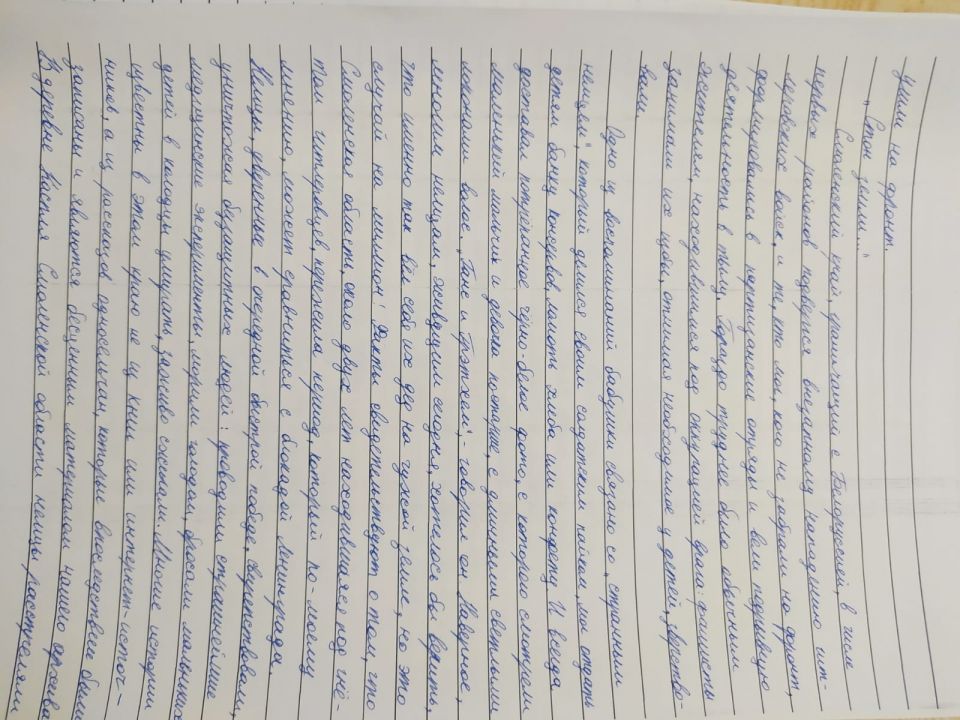 ушли на фронт.
"Стон земли..."
Смоленский край, граничащий с Белоруссией, в числе
первых районов подвергся внезапному нападению гит-
леровских войск, и те, кто мог, кого не забрали на фронт,
формировались в партизанские отряды и вели подрывную
деятельность в тылу. Гораздо труднее было обычным
жителям, находившимся под оккупацией врага: фашисты
занимали их дома, отнимая необходимое у детей, зверство-
вали.
Одно из воспоминаний бабушки связано со "странным
немцем", который делился своим солдатским пайком, мог отдать
детям банку консервов, ломоть хлеба или конфету. И всегда
доставал потрёпанное чёрно-белое фото, с которого смотрели
маленький мальчик и девочка постарше, с длинными светлыми
локонами волос, "Ганс и Гретхен", - говорил он. Наверное,
многим немцам, живущим сегодня, хотелось бы верить,
что именно так вёл себя их дед на чужой земле, но это
случай на миллион! Факты свидетельствуют о том, что
Смоленская область, около двух лет находившаяся под гнё-
том гитлеровцев, пережила период, который по-моему
мнению, может сравниться с блокадой Ленинграда.
Немцы, уверенные в очередной быстрой победе, свирепствовали,
уничтожая беззащитных людей: проводили страшнейшие
медицинские эксперименты, морили голодом, бросали маленьких
детей в колодцы умирать, заживо сжигали. Многие истории
известны в этом краю не из книг или интернет-источ-
ников, а из рассказов односельчан, которые впоследствии были
записаны и являются бесценным материалом нашего архива
В деревне Каспля Смоленской области немцы расстреляли